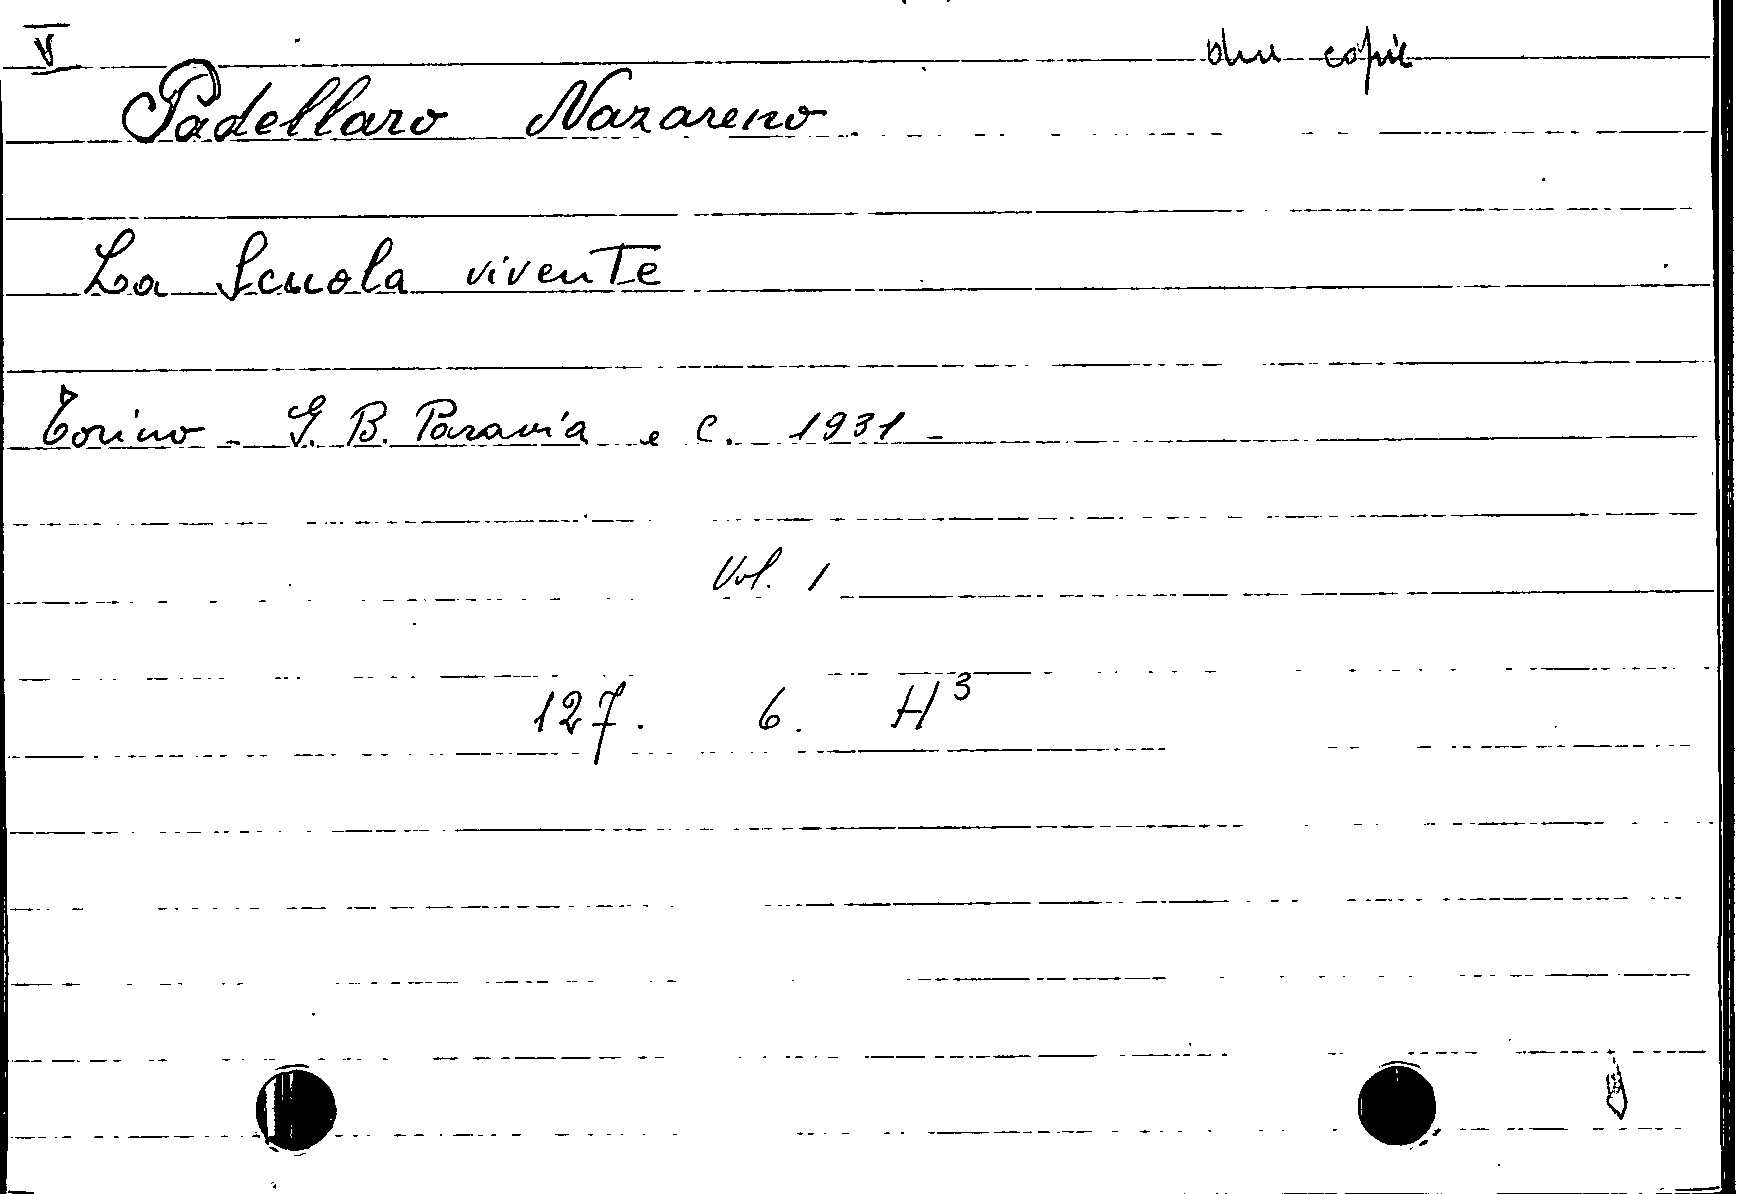 V due copie
Padellaro Nazareno
La Scuola vivente
Torino - G. B. Paravia e C. 1931 -
Vol. 1
127. 6. H³